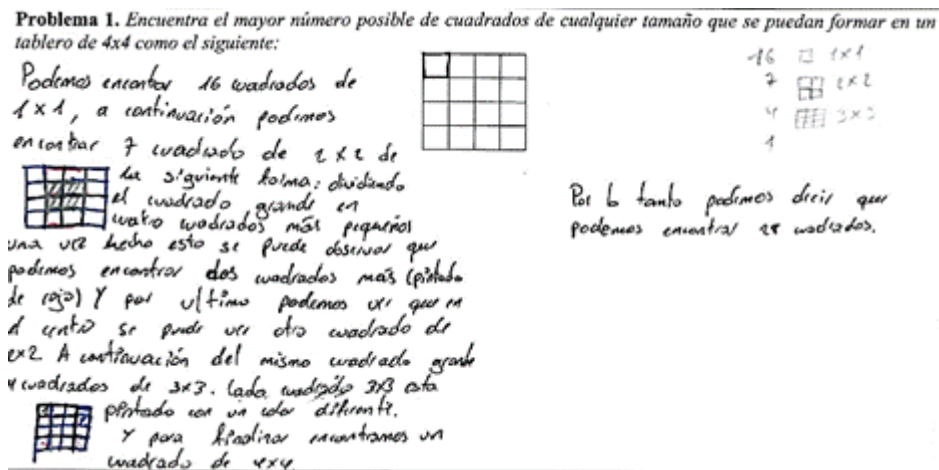 Problema 1. Encuentra el mayor número posible de cuadrados de cualquier tamaño que se puedan formar en un
tablero de 4x4 como el siguiente:
Podemos encontrar 16 cuadrados de
1x1, a continuación podemos
encontrar 7 cuadrado de 2x2 de
la siguiente forma: dividiendo
el cuadrado grande en
cuatro cuadrados más pequeños
una vez hecho esto se puede observar que
podemos encontrar dos cuadrados más (pintado
de rojo) Y por ultimo podemos ver que en
el centro se puede ver otro cuadrado de
2x2. A continuación del mismo cuadrado grande
4 cuadrados de 3x3. Cada cuadrado 3x3 esta
pintado con un color diferente.
Y para finalizar encontramos un
cuadrado de 4x4
16 1x1
7 2x2
4 3x3
1
Por lo tanto podemos decir que
podemos encontrar 28 cuadrados.